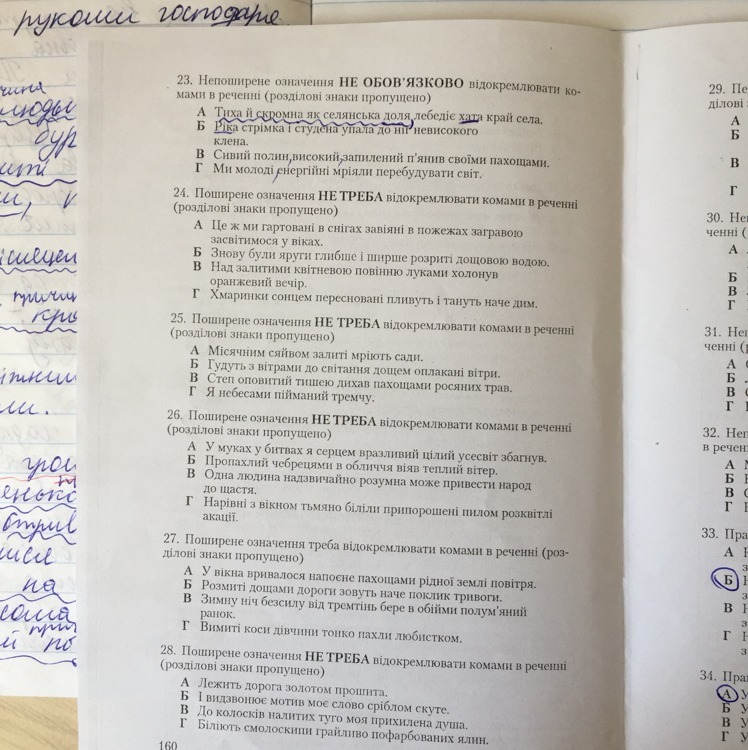 рукоми господаря
23. Непоширене означення НЕ ОБОВ’ЯЗКОВО відокремлювати ко-
мами в реченні (розділові знаки пропущено)
А Тиха й скромна як селянська доля, лебедіє хата край села.
Б Ріка стрімка і студена упала до ніг невисокого
клена.
В Сивий полин, високий, запилений п’янив своїми пахощами.
Г Ми молоді, енергійні мріяли перебудувати світ.
24. Поширене означення НЕ ТРЕБА відокремлювати комами в реченні
(розділові знаки пропущено)
А Це ж ми гартовані в снігах завіяні в пожежах загравою
засвітимося у віках.
Б Знову були яруги глибше і ширше розриті дощовою водою.
В Над залитими квітневою повінню луками холонув
оранжевий вечір.
Г Хмаринки сонцем пересновані пливуть і тануть наче дим.
25. Поширене означення НЕ ТРЕБА відокремлювати комами в реченні
(розділові знаки пропущено)
А Місячним сяйвом залиті мріють сади.
Б Гудуть з вітрами до світання дощем оплакані вітри.
В Степ оповитий тишею дихав пахощами росяних трав.
Г Я небесами пійманий тремчу.
26. Поширене означення НЕ ТРЕБА відокремлювати комами в реченні
(розділові знаки пропущено)
А У муках у битвах я серцем вразливий цілий усесвіт збагнув.
Б Пропахлий чебрецями в обличчя віяв теплий вітер.
В Одна людина надзвичайно розумна може привести народ
до щастя.
Г Нарівні з вікном тьмяно біліли припорошені пилом розквітлі
акації.
27. Поширене означення треба відокремлювати комами в реченні (роз-
ділові знаки пропущено)
А У вікна вривалося напоєне пахощами рідної землі повітря.
Б Розмиті дощами дороги зовуть наче поклик тривоги.
В Зимну ніч безсилу від тремтінь бере в обійми полум’яний
ранок.
Г Вимиті коси дівчини тонко пахли любистком.
28. Поширене означення НЕ ТРЕБА відокремлювати комами в реченні
(розділові знаки пропущено)
А Лежить дорога золотом прошита.
Б І видзвонює мотив моє слово сріблом скуте.
В До колосків налитих туго моя прихилена душа.
Г Біліють смолоскипи грайливо пофарбованих ялин.
160
29. Пе
ділові з
А
Б
В
Г
30. Неп
ченні (
А
Б
В
Г
31. Неп
ченні (р
А
Б
В
Г
32. Неп
в речен
А
Б
В
Г
33. Пра
А
Б
В
Г
34. Пра
А
Б
В
Г